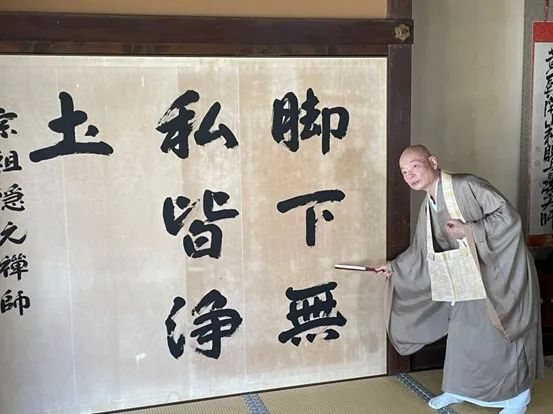 脚下無
私皆浄
土
宗祖隠元禅師